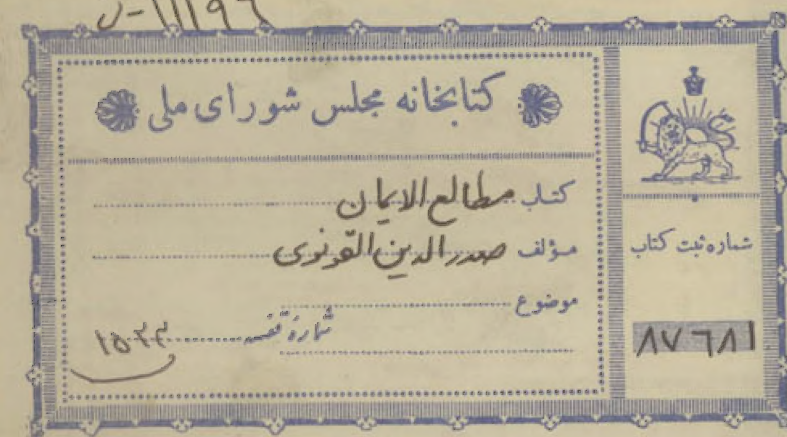 کتابخانه مجلس شورای ملی
کتاب مطالع الایمان
مؤلف صدرالدین القونوی
موضوع
شماره قفسه ۱۵۳۳
شماره ثبت کتاب
۸۷۶۸۱